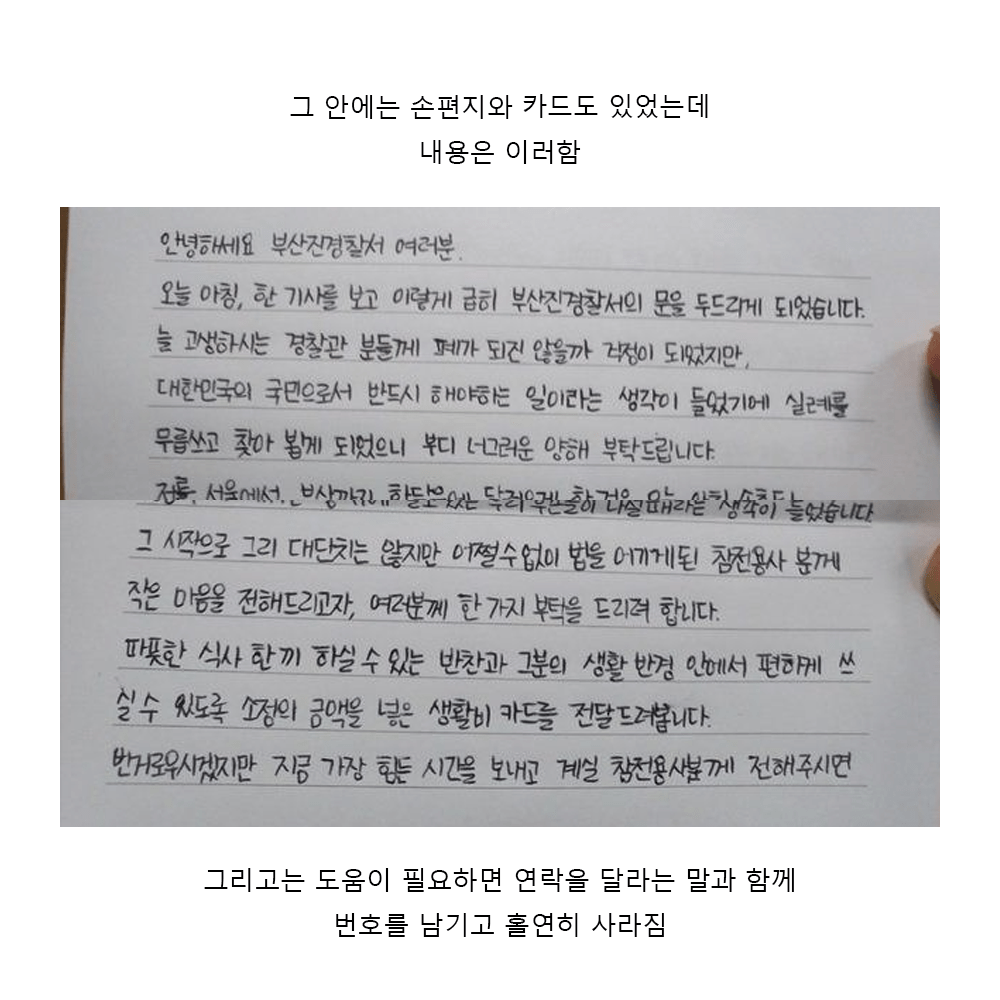 그 안에는 손편지와 카드도 있었는데
내용은 이러함
안녕하세요 부산진경찰서 여러분.
오늘 아침, 한 기사를 보고 이렇게 급히 부산진경찰서의 문을 두드리게 되었습니다.
늘 고생하시는 경찰관 분들께 폐가 되진 않을까 걱정이 되었지만,
대한민국의 국민으로서 반드시 해야하는 일이라는 생각이 들었기에 실례를
무릅쓰고 찾아 뵙게 되었으니 부디 너그러운 양해 부탁드립니다.
서울에서 들었습니다
그 시작으로 그리 대단치는 않지만 어쩔수없이 법을 어기게된 참전용사 분께
작은 마음을 전해드리고자, 여러분께 한 가지 부탁을 드리려 합니다.
따뜻한 식사 한 끼 하실 수 있는 반찬과 그분의 생활 반경 안에서 편하게 쓰
실 수 있도록 소정의 금액을 넣은 생활비 카드를 전달드려봅니다.
번거로우시겠지만 지금 가장 힘든 시간을 보내고 계실 참전용사분께 전해주시면
그리고는 도움이 필요하면 연락을 달라는 말과 함께
번호를 남기고 홀연히 사라짐